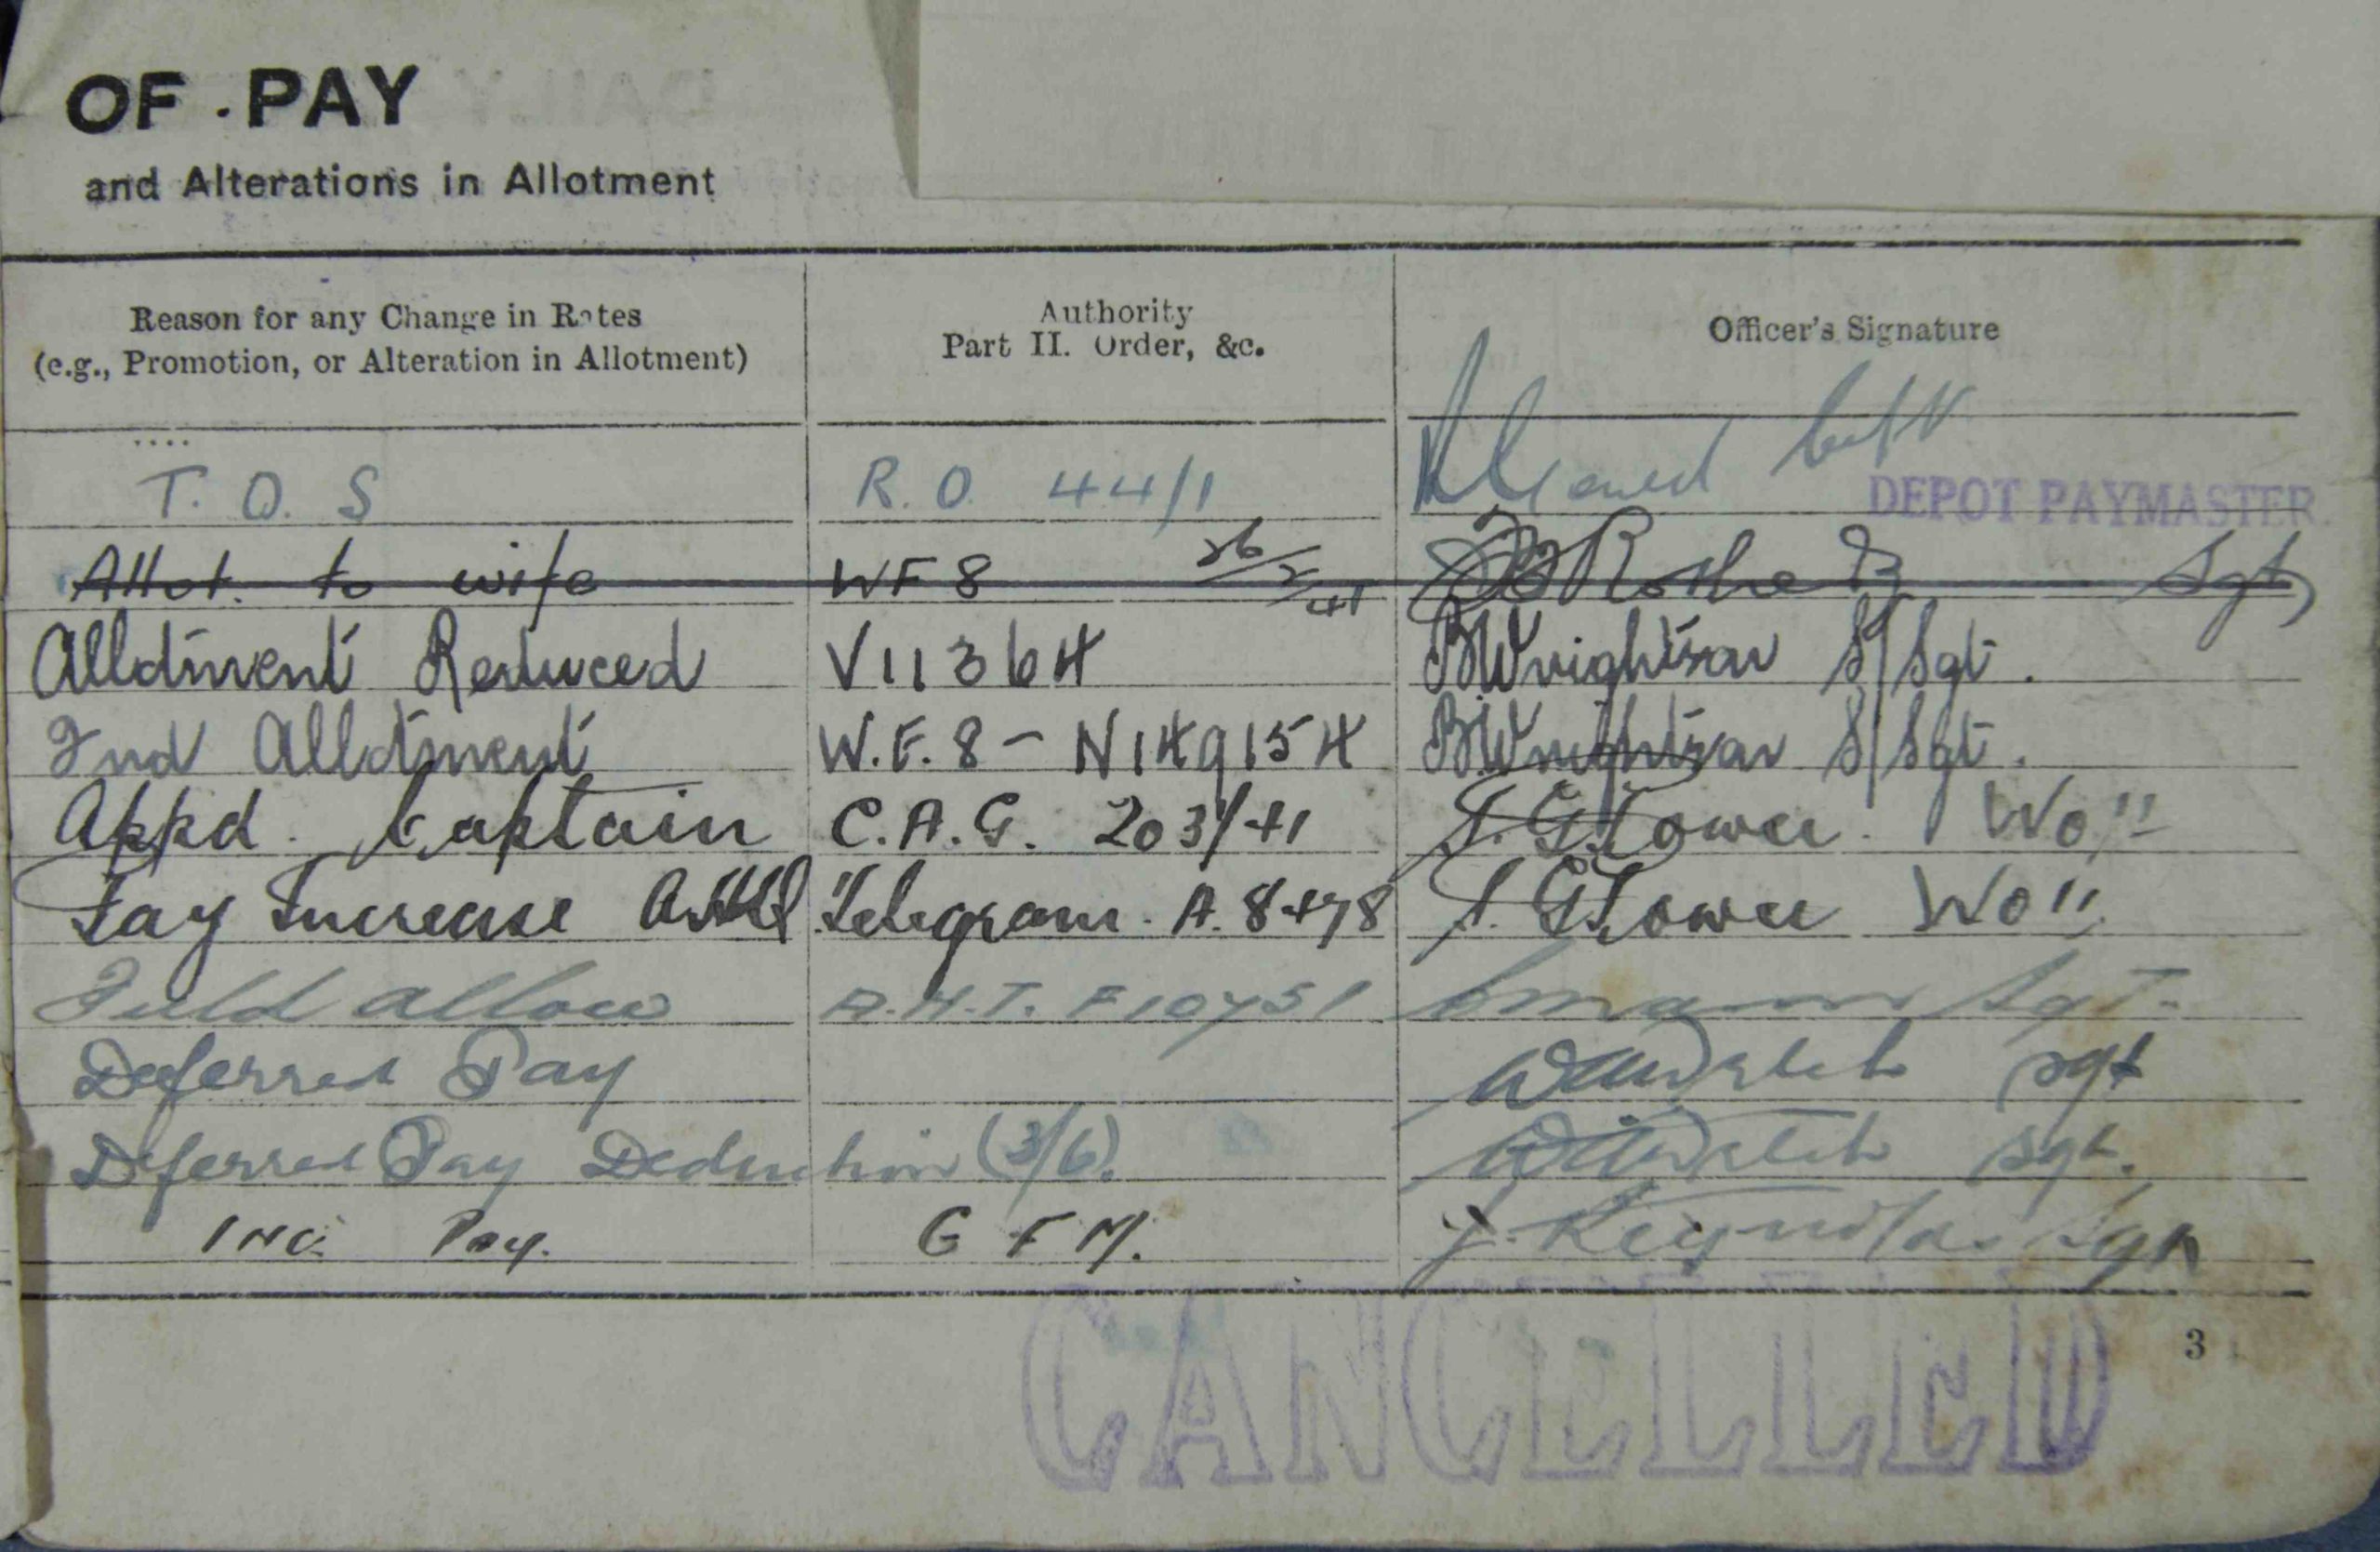 OF PAY
and Alterations in Allotment
Reason for any Change in Rates
(e.g., Promotion, or Alteration in Allotment)
Authority
Part II. Order, &c.
Officer's Signature
T. O. S R. O. 44/1 Capt
DEPOT PAYMASTER
Allot. to wife WF 8 26/2/41 Sgt
Allotment Reduced V11364 BWrightson S/Sgt.
2nd Allotment W.F. 8 - N149154 BWrightson S/Sgt.
Appd. Captain C.A.G. 203/41 WO II
Pay Increase Telegram. A. 8478 WO II
Field allow F10751 Sgt.
Deferred Pay Sgt
Deferred Pay Deduction (3/6). Sgt.
INC. Pay. G F M. J. Reynolds Sgt
3
CANCELLED